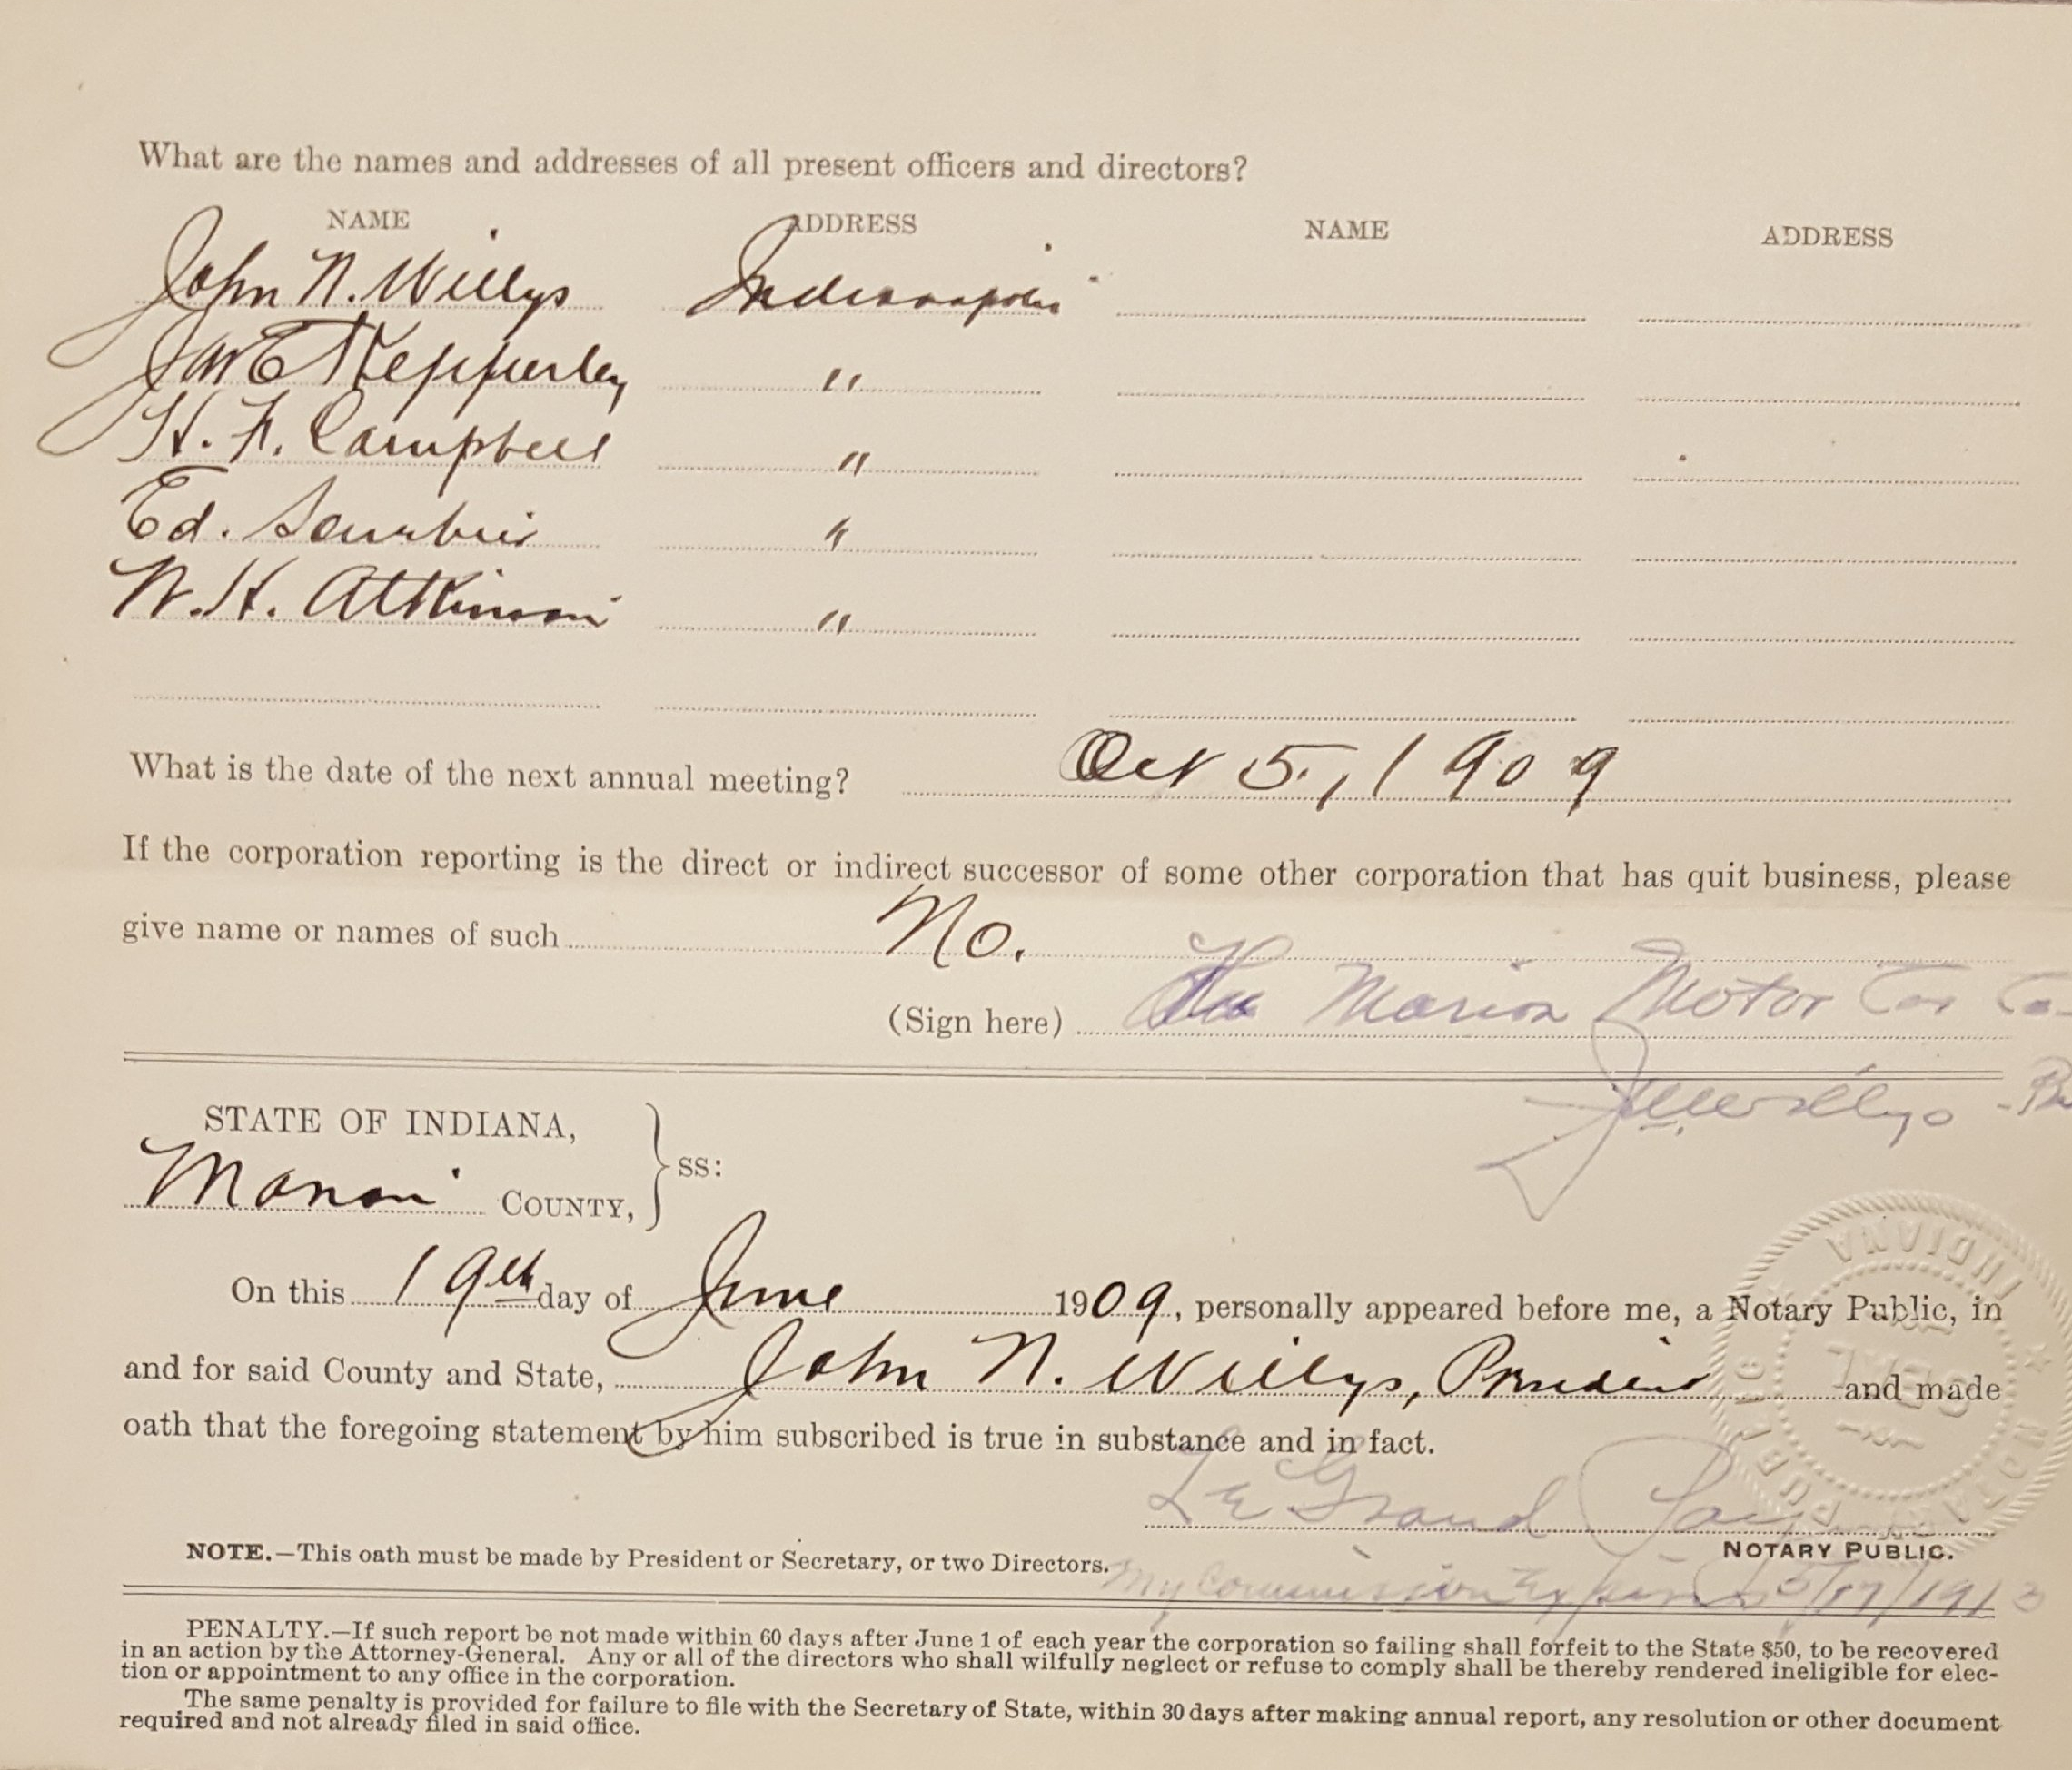 What are the names and addresses of all present officers and directors?
NAME ADDRESS NAME ADDRESS
John N. Willys Indianapolis
Jas E Kepperley "
H. F. Campbell "
Ed. Sourbier "
W. H. Atkinson "
What is the date of the next annual meeting? Oct 5, 1909
If the corporation reporting is the direct or indirect successor of some other corporation that has quit business, please
give name or names of such No.
(Sign here) The Marion Motor Car Co.
JN Willys - Pr
STATE OF INDIANA,
Marion COUNTY, } ss:
On this 19th day of June 1909, personally appeared before me, a Notary Public, in
and for said County and State, John N. Willys, President and made
oath that the foregoing statement by him subscribed is true in substance and in fact.
Le Grand
NOTE.—This oath must be made by President or Secretary, or two Directors. NOTARY PUBLIC.
My Commission Expires 3/17/1913
PENALTY.—If such report be not made within 60 days after June 1 of each year the corporation so failing shall forfeit to the State $50, to be recovered
in an action by the Attorney-General. Any or all of the directors who shall wilfully neglect or refuse to comply shall be thereby rendered ineligible for elec-
tion or appointment to any office in the corporation.
The same penalty is provided for failure to file with the Secretary of State, within 30 days after making annual report, any resolution or other document
required and not already filed in said office.
NOTARY PUBLIC
INDIANA
SEAL